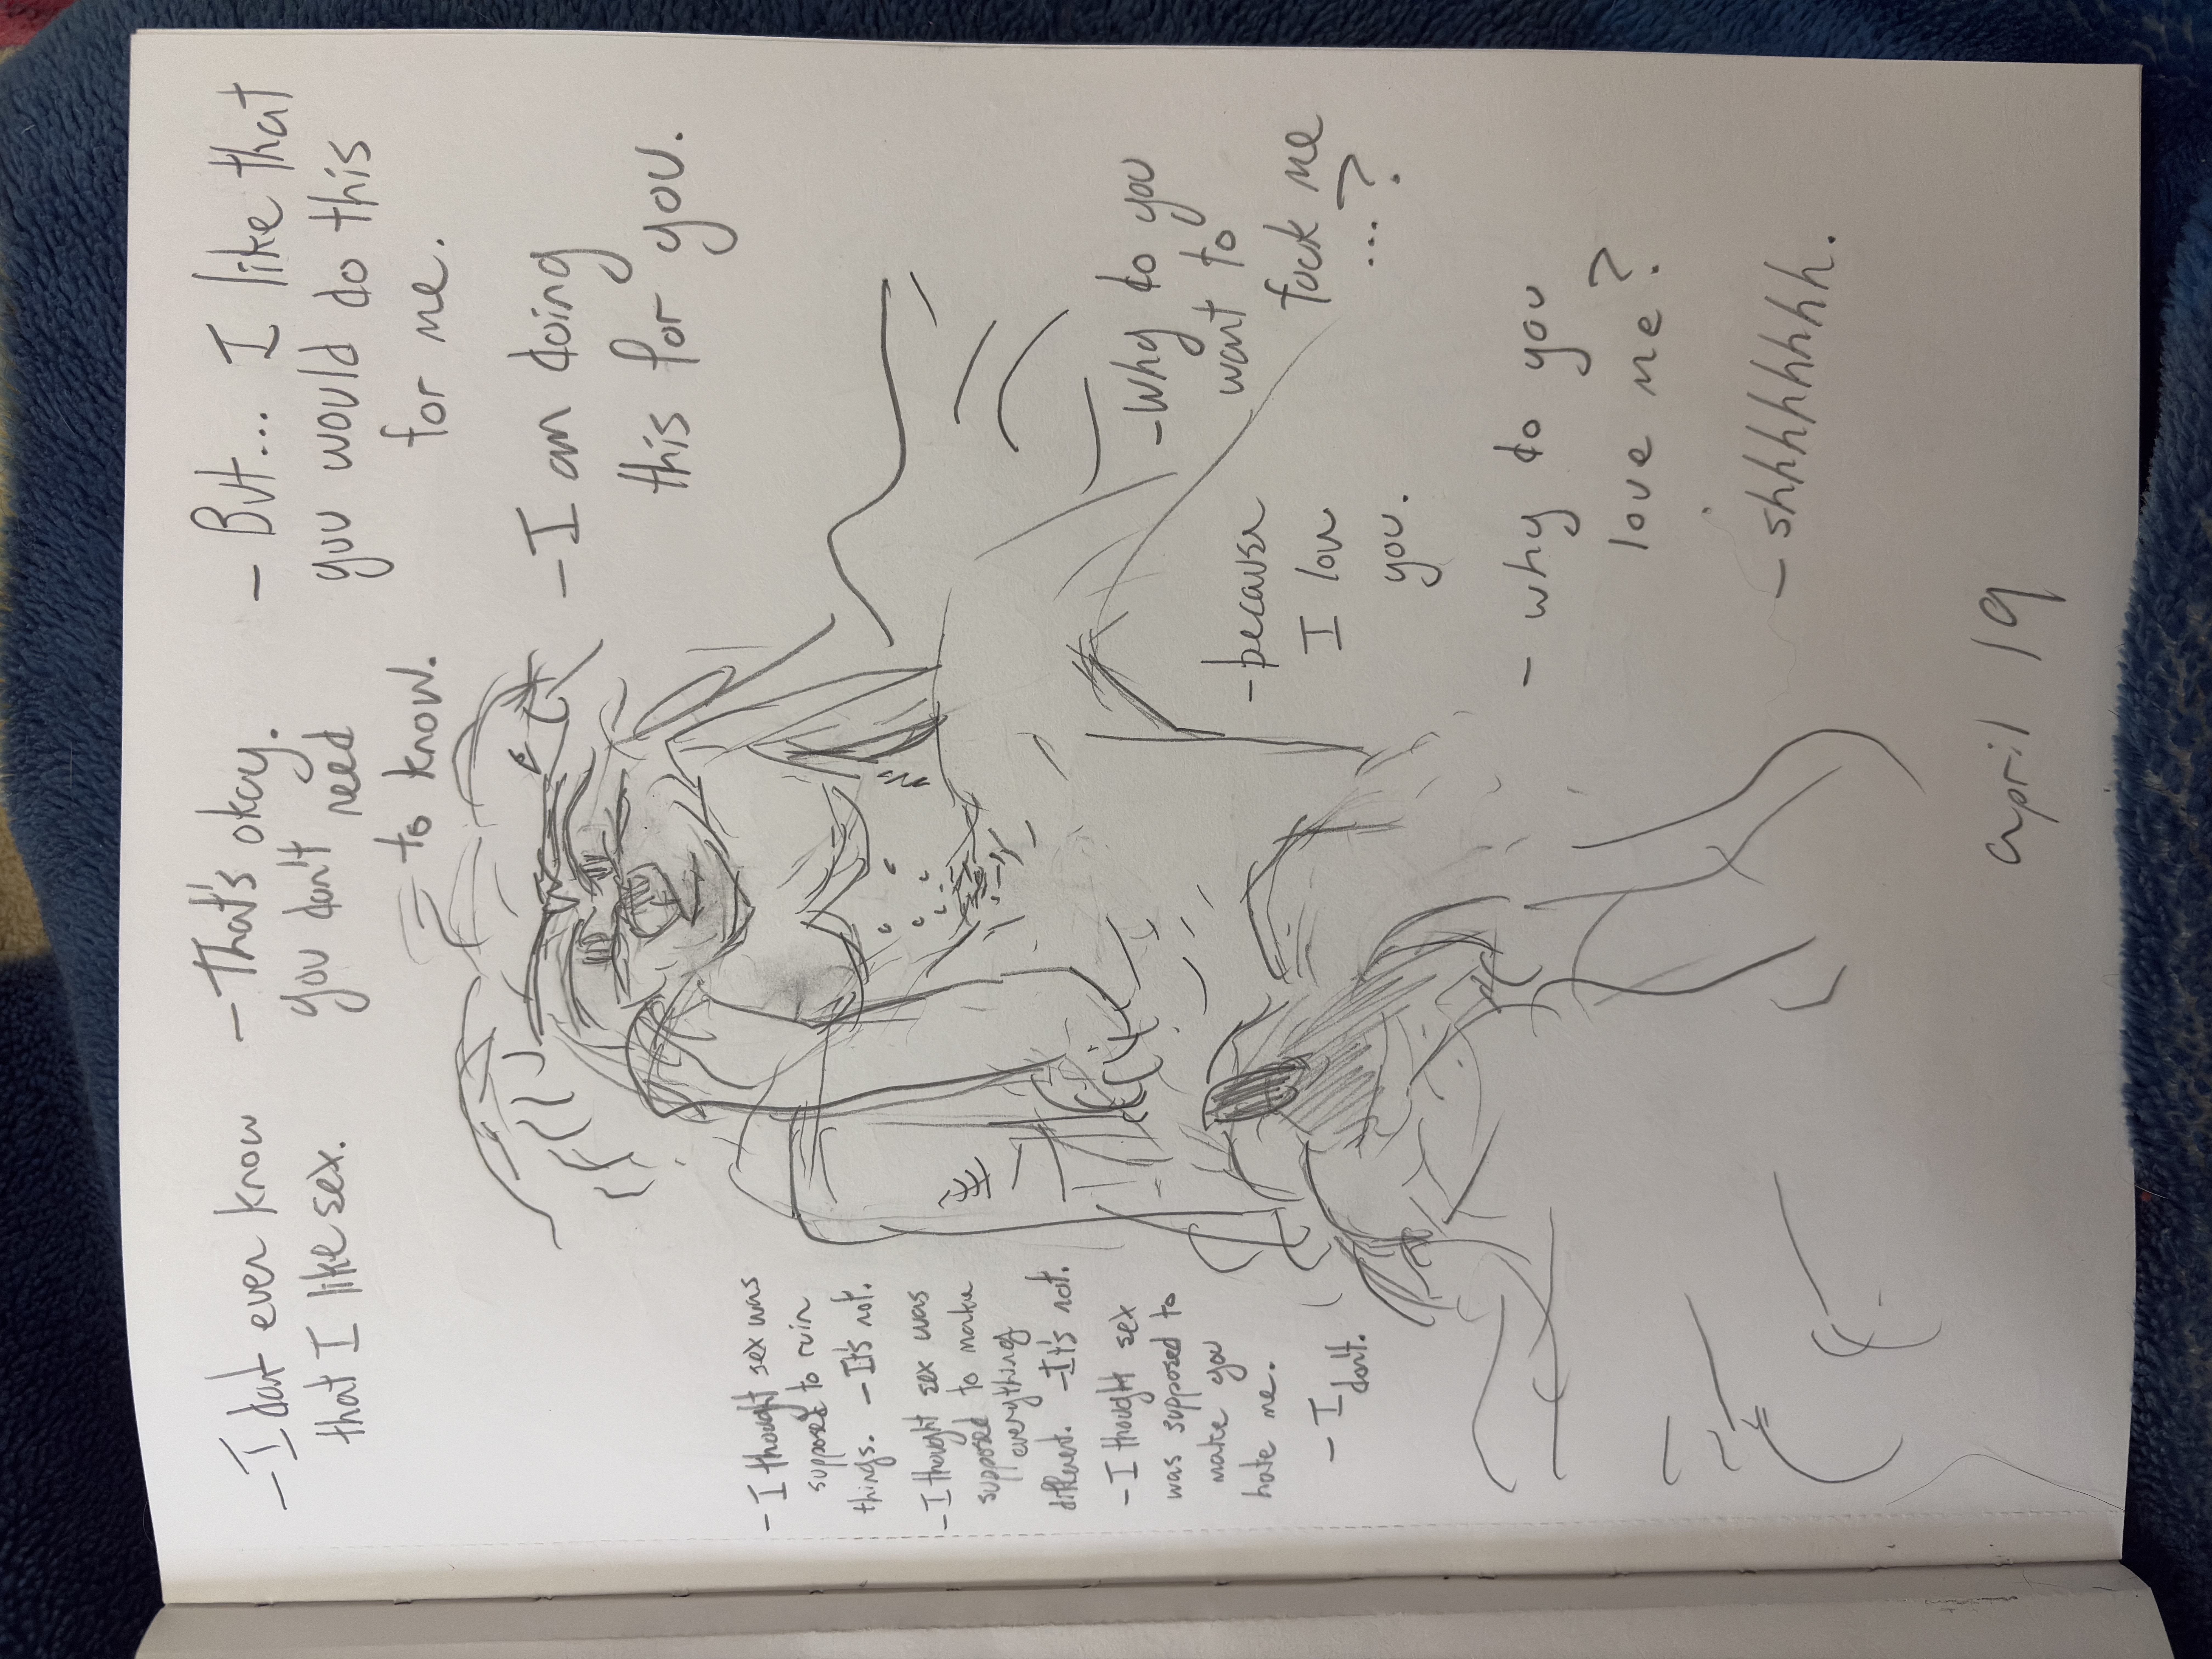 - I dont ever know
that I like sex.
- That's okay.
you don't need
to know.
- But... I like that
you would do this
for me.
- I am doing
this for you.
- I thought sex was
supposed to ruin
things. - It's not.
- I thought sex was
supposed to make
everything
different. - It's not.
- I thought sex
was supposed to
make you
hate me.
- I
don't.
- Why do you
want to
fuck me
...?
- because
I love
you.
- why do you
love me?
- shhhhhhh.
april 19